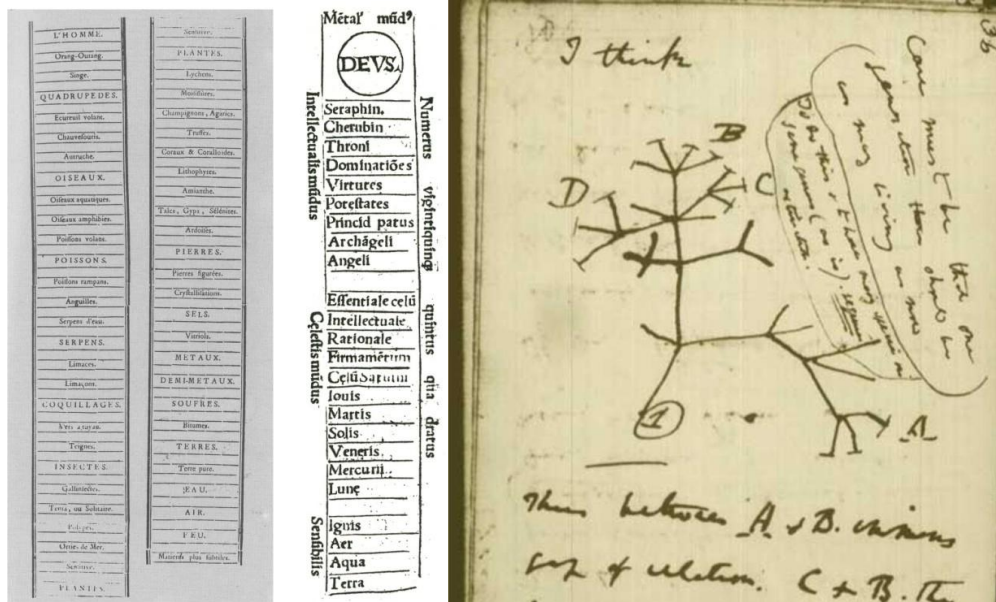 L'HOMME.
Orang-Outang.
Singe.
QUADRUPEDES.
Ecureuil volant.
Chauvesouris.
Autruche.
OISEAUX.
Oiseaux aquatiques.
Oiseaux amphibies.
Poissons volans.
POISSONS.
Poissons rampans.
Anguilles.
Serpens d'eau.
SERPENS.
Limaces.
Limaçons.
COQUILLAGES.
Vers à tuyau.
Teignes.
INSECTES.
Gallinsectes.
Tænia, ou Solitaire.
Polypes.
Orties de Mer.
Sensitive.
PLANTES.
Sensitive.
PLANTES.
Lychens.
Moisissures.
Champignons, Agarics.
Truffes.
Coraux & Coralloides.
Lithophytes.
Amianthe.
Talcs, Gyps, Sélénites.
Ardoises.
PIERRES.
Pierres figurées.
Crystallisations.
SELS.
Vitriols.
METAUX.
DEMI-METAUX.
SOUFRES.
Bitumes.
TERRES.
Terre pure.
EAU.
AIR.
FEU.
Matieres plus subtiles.
Mētal' mūd⁹
DEVS.
Intellectualis mūdus
Seraphin.
Cherubin
Throni
Dominatiōes
Virtutes
Potestates
Princid patus
Archāgeli
Angeli
Cęlestis mūdus
Essentiale cęlū
Intellectuale
Rationale
Firmamētum
Cęlū Saturni
Iouis
Martis
Solis
Veneris
Mercurii
Lunę
Sensibilis
Ignis
Aer
Aqua
Terra
Numerus vigintiquinq quintus qūa dratus
36
I think
Case must be that one
generation then should be
as many living as now
To do this & to have many species in
same genus (as is). requires
extinction.
B
D
C
1
A
Thus between A & B. immens
gap of relation. C & B. the